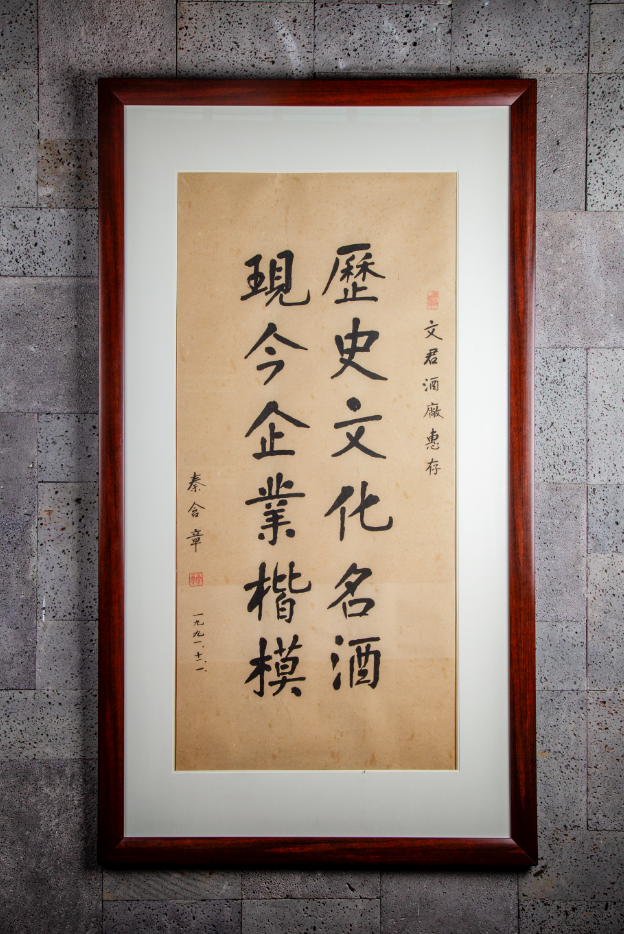 文君酒廠惠存
歷史文化名酒
現今企業楷模
秦含章
一九九一.十二.一.